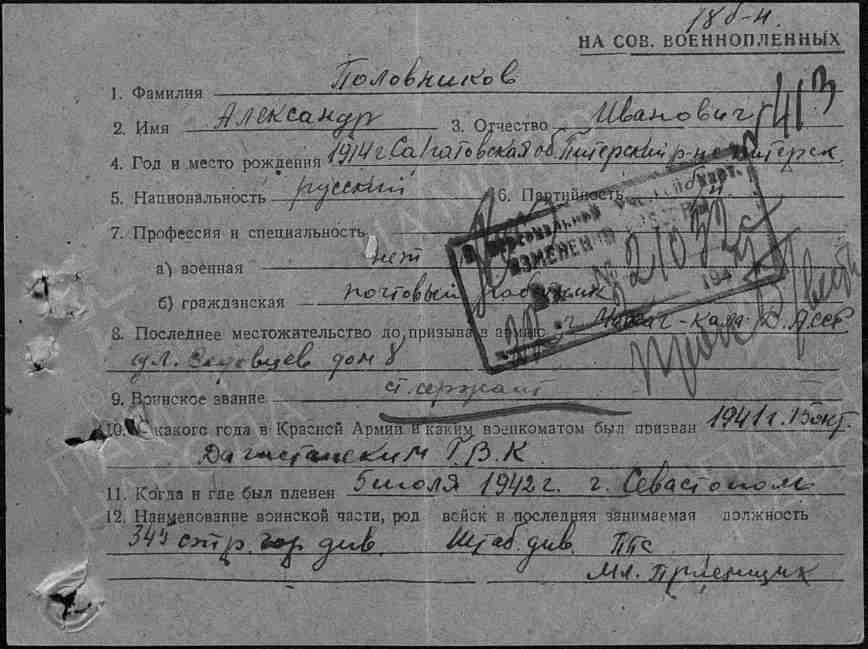 18б-н.
НА СОВ. ВОЕННОПЛЕННЫХ
1. Фамилия Половников
2. Имя Александр 3. Отчество Иванович
413
4. Год и место рождения 1914 г. Саратовская об. Питерский р-н Питерск
5. Национальность русский 6. Партийность
7. Профессия и специальность
а) военная нет
б) гражданская почтовый работник
В персональный
ИЗМЕНЕНИЯ
Вх № 21032
194
8. Последнее местожительство до призыва в армию г. Махач-Кала Д.АССР
ул. дом 8
9. Воинское звание ст. сержант
10. С какого года в Красной Армии и каким военкоматом был призван 1941 г. 15 окт.
Дагистанским Г.В.К
11. Когда и где был пленен 5 июля 1942 г. г. Севастополь
12. Наименование воинской части, род войск и последняя занимаемая должность
345 стр. див. Штаб. див. ППС
Мл. Приемщик